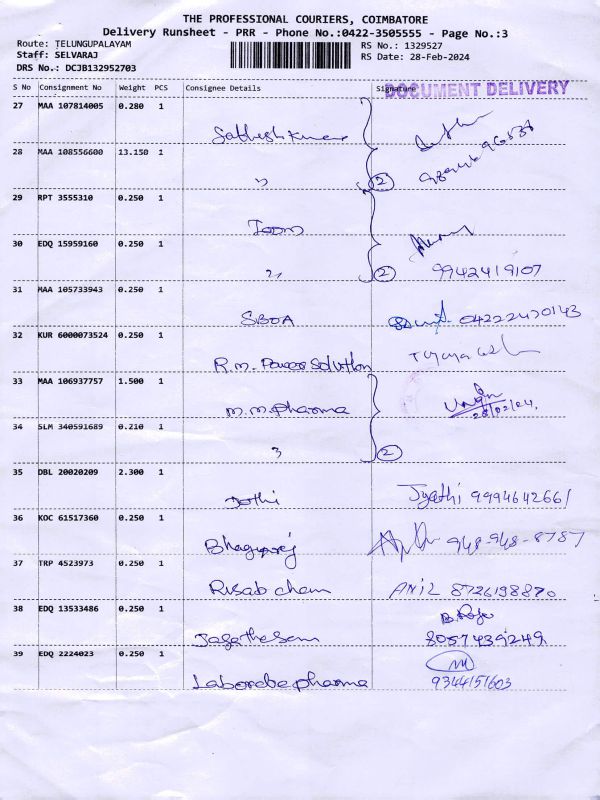 THE PROFESSIONAL COURIERS, COIMBATORE
Delivery Runsheet - PRR - Phone No.:0422-3505555 - Page No.:3
Route: TELUNGUPALAYAM
Staff: SELVARAJ
DRS No.: DCJB132952703
RS No.: 1329527
RS Date: 28-Feb-2024
S No Consignment No Weight PCS Consignee Details Signature
DOCUMENT DELIVERY
27 MAA 107814005 0.280 1
Sathishkumar
28 MAA 108556600 13.150 1
" 2
29 RPT 3555310 0.250 1
30 EDQ 15959160 0.250 1
" 2 9942419107
31 MAA 105733943 0.250 1
SBOA 04222470143
32 KUR 6000073524 0.250 1
R.m. Power Solution
33 MAA 106937757 1.500 1
m.m. pharma 28/02/24,
34 SLM 340591689 0.210 1
" 2
35 DBL 20020209 2.300 1
Jothi Jyothi 9994642661
36 KOC 61517360 0.250 1
Bhagyaraj 948-948-8787
37 TRP 4523973 0.250 1
Risab cham ANIL 8726198870
38 EDQ 13533486 0.250 1
B. Roja
Jagathesan 8057439249
39 EDQ 2224023 0.250 1
Laborate pharma 9344151603